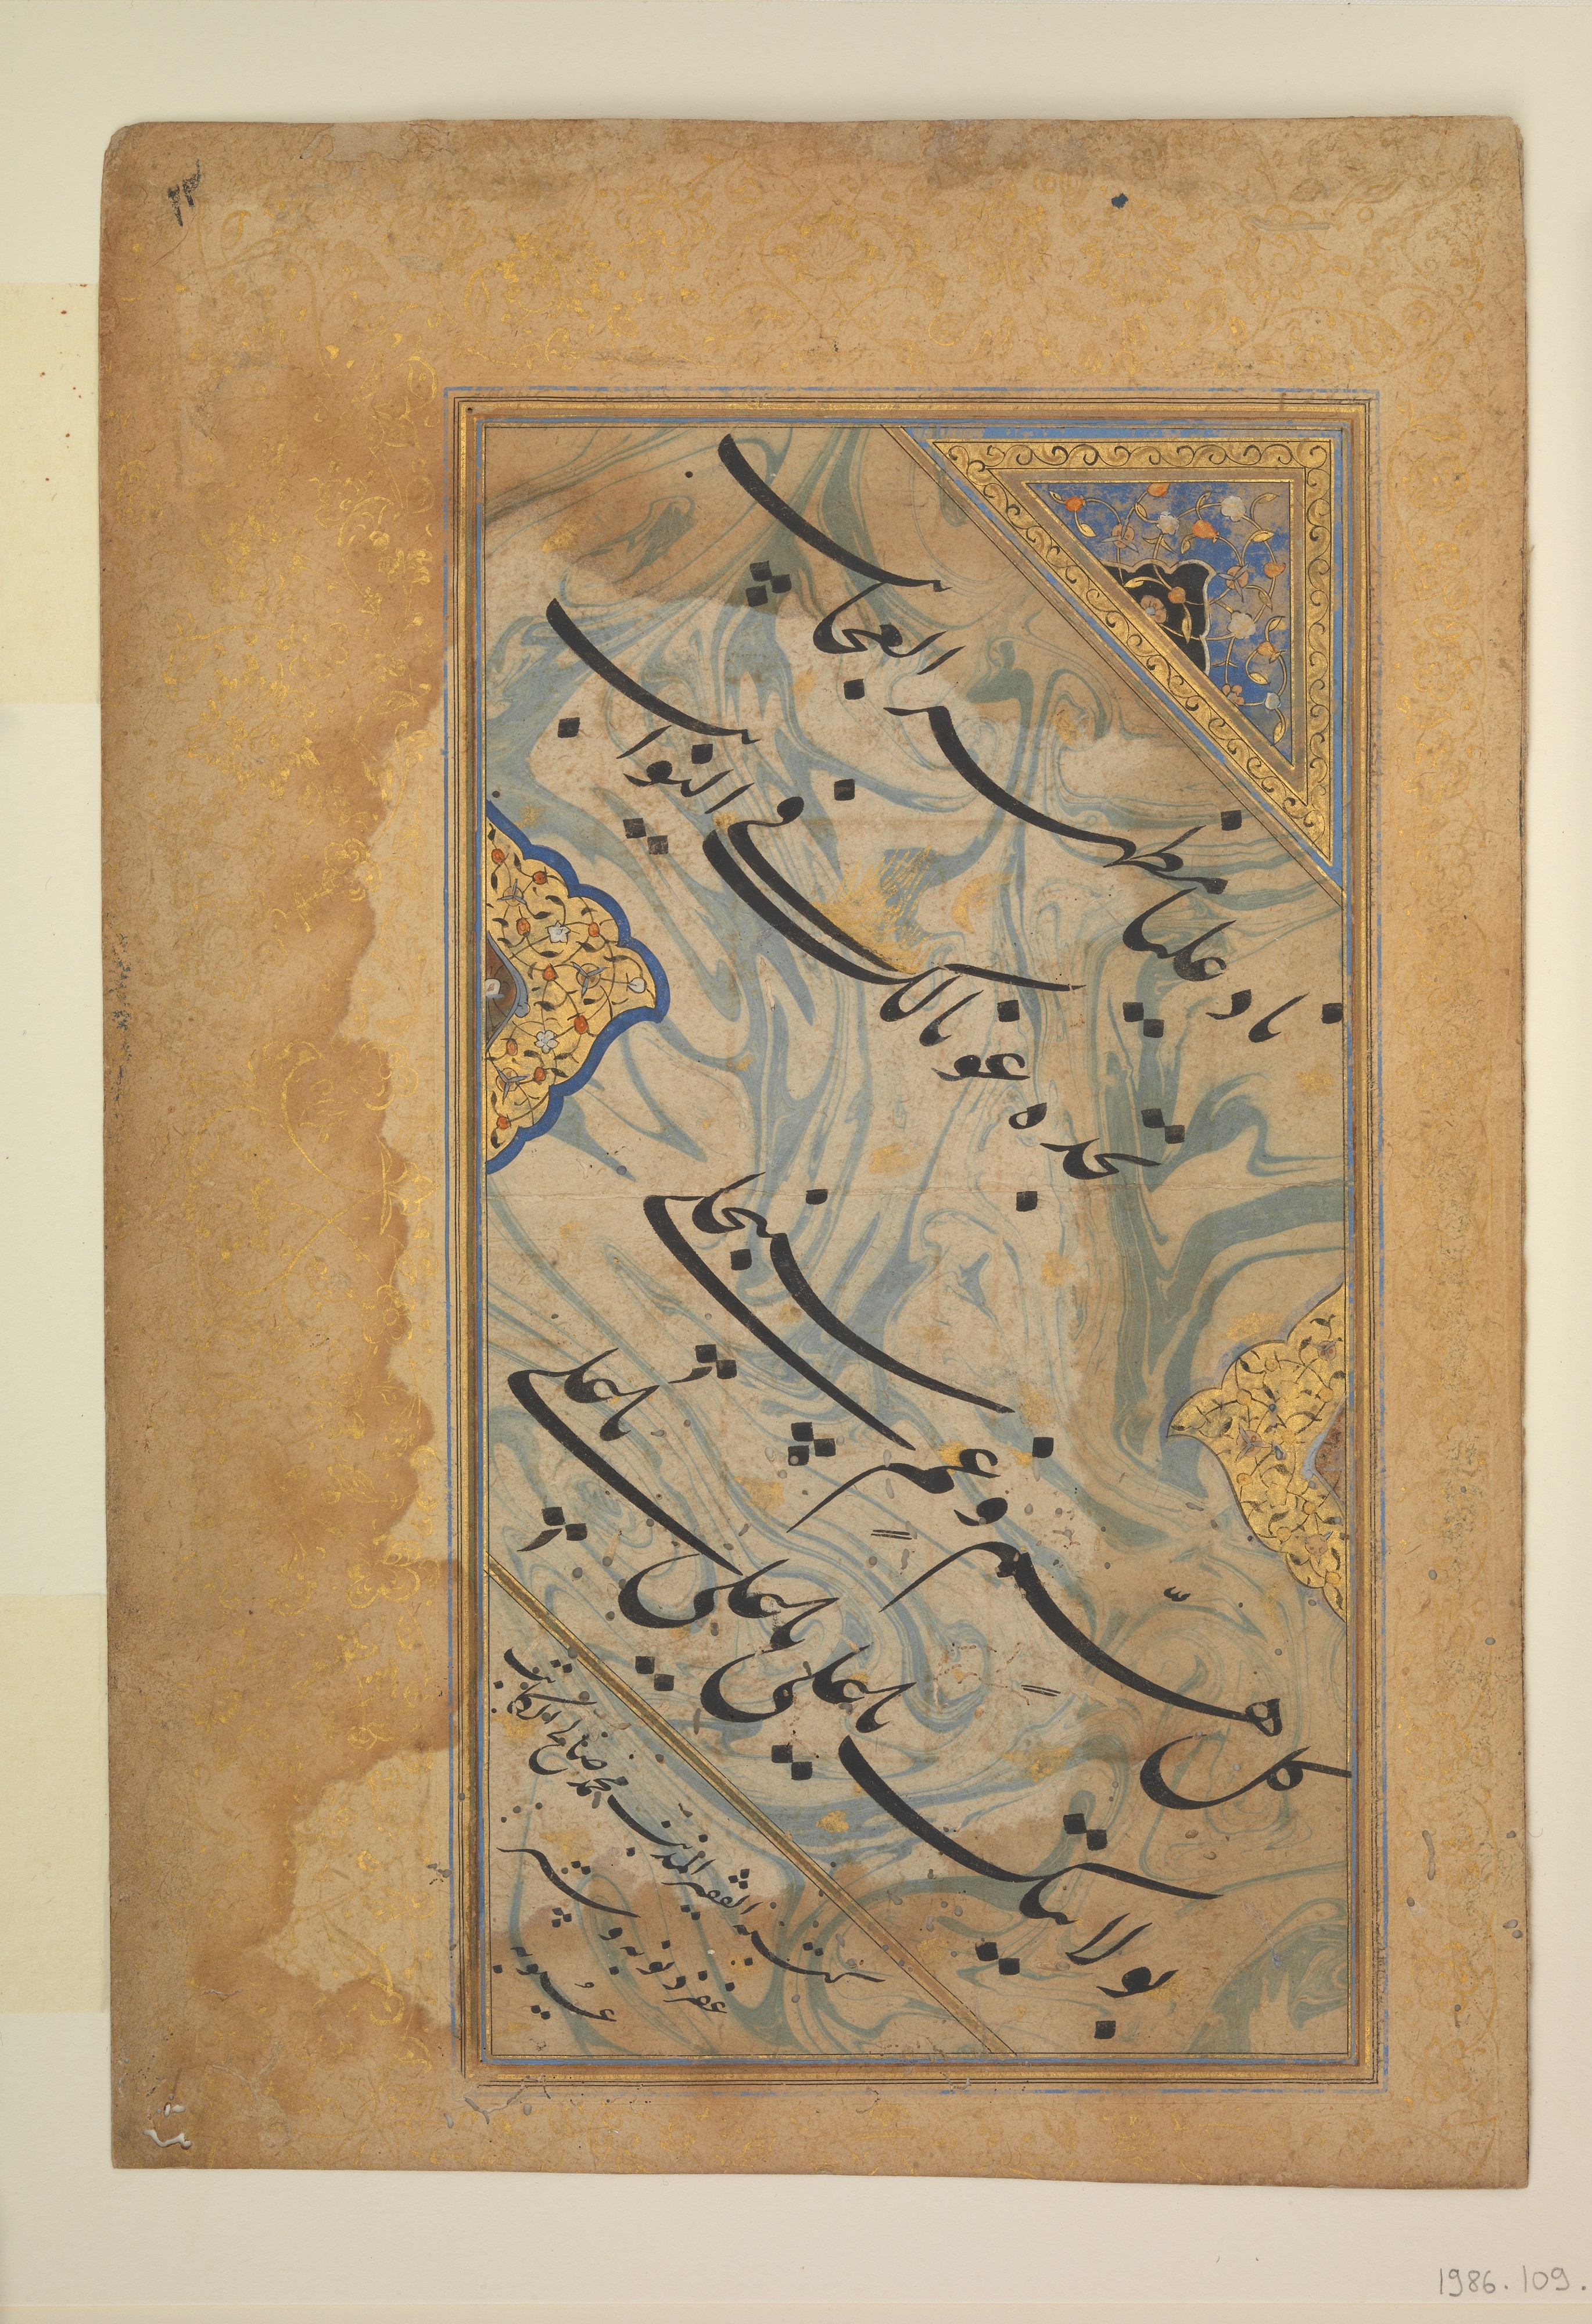 ناد علیا مظهر العجائب
تجده عونا لک فی النوائب
کل هم و غم سینجلی
بولایتک یا علی یا علی یا علی
کتبه الفقیر المذنب محمد صالح الکاتب
غفر ذنوبه و ستر
عیوبه
1986.109.